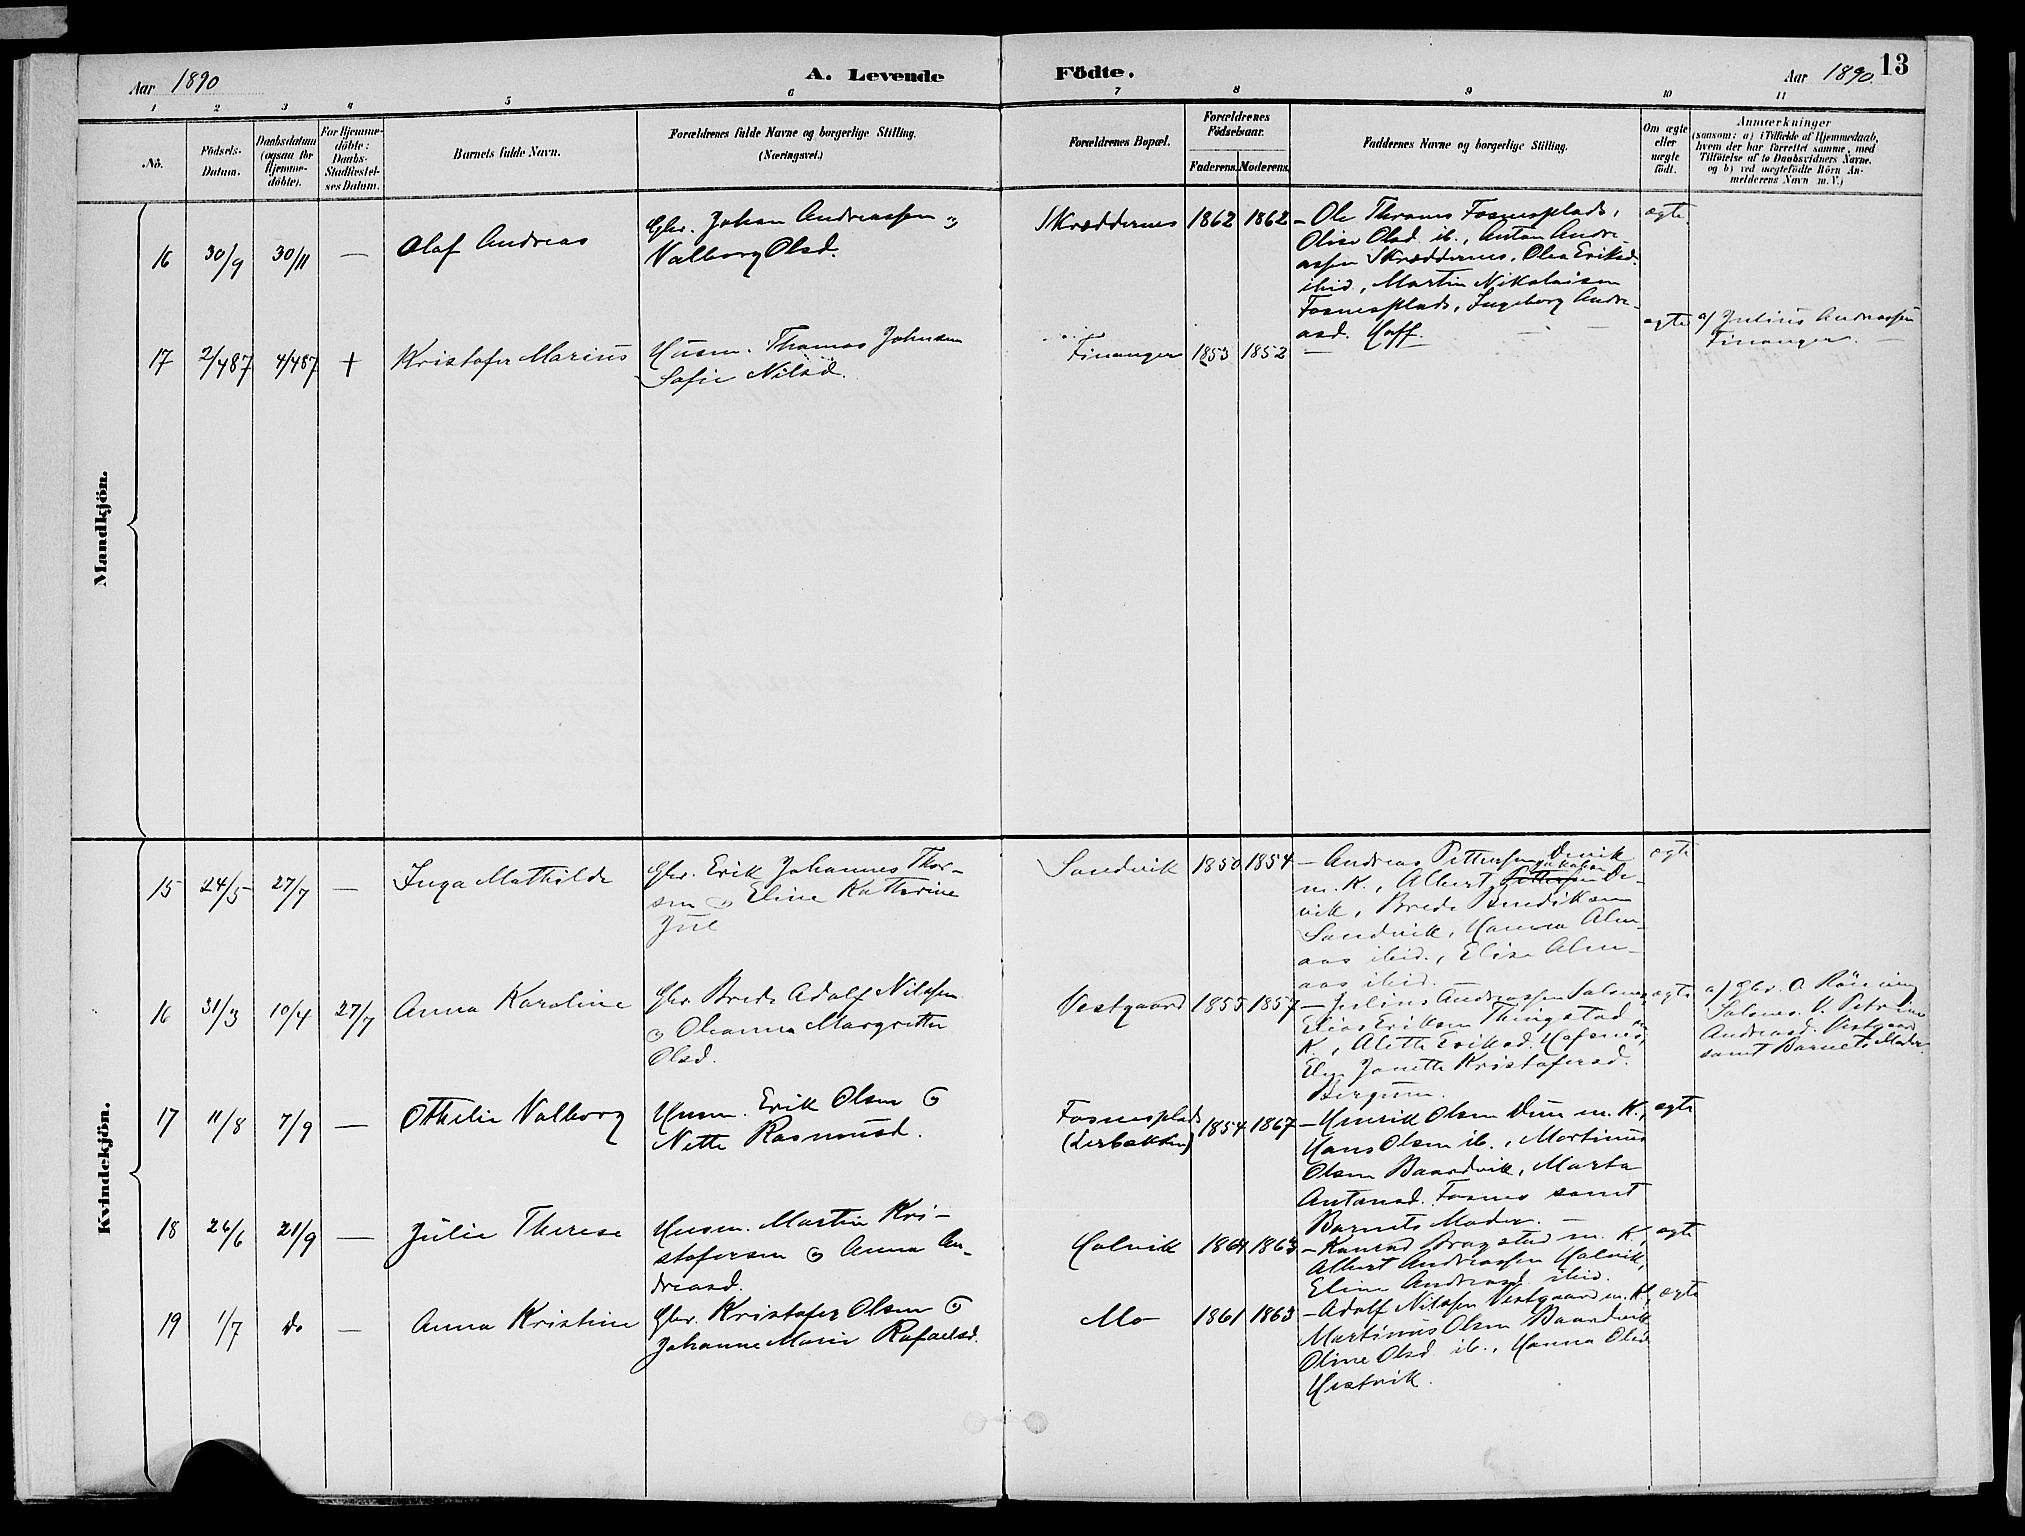 Aar 1890
A. Levende Födte.
Aar 1890.
13
1 2 3 4 5 6 7 8 9 10 11
No.
Födsels-Datum.
Daabsdatum (ogsaa for Hjemme-döbte).
For Hjemme-döbte: Daabs-Stadfæstel-ses Datum.
Barnets fulde Navn.
Forældrenes fulde Navne og borgerlige Stilling.
(Næringsvei.)
Forældrenes Bopæl.
Forældrenes Födselsaar.
Faderens. Moderens.
Faddernes Navne og borgerlige Stilling.
Om ægte eller uægte födt.
Anmærkninger
(saasom: a) i Tilfælde af Hjemmedaab,
hvem der har forrettet samme, med
Tilföielse af to Daabsvidners Navne.
og b) ved uægtefödte Börn An-
melderens Navn m. V.)
Mandkjön.
16 30/9 30/11 — Olaf Andreas
Gbr. Johan Andreassen og
Valborg Olsd.
Skræddernes 1862 1862
— Ole Thranes Fosnesplads,
Olise Olsd. ib., Anton Andre
assen Skræddernes, Olea Eriksd.
ibid., Martin Nikolaisen
Fosnesplads, Ingeborg Andre-
asd. Hoff.
ægte
17 2/4 87 4/4 87 + Kristofer Marius
Husm. Thomas Johnsen
Sofie Nilsd.
Finanger 1853 1852 —
ægte
af Julius Andreassen
Finanger. —
Kvindekjön.
15 24/5 27/7 — Inga Mathilde
Gbr. Erik Johannes Thor-
sen og Eline Katherine
Juel
Sandvik 1850 1854
— Andreas Pettersen Devik
m. K., Albert Pettersen De-
vik, Brede Bendiksen
Sandvik, Hanna Alm-
aas ibid., Elise Alm-
aas ibid.
ægte
16 31/3 10/4 27/7 Anna Karoline
Gbr. Brede Adolf Nilssen
og Oleanna Margrethe
Olsd.
Vestgaard 1855 1857
— Julius Andreassen Salsnes
Elias Eriksen Thingstad m
K., Aletth Eriksd. Hofsnes,
Eln Janette Kristofersd.
Bergum.
ægte
af Gbr. O. Röhning
Salsnes. V. Petrine
Andreasd. Vestgaard
samt Barnets Moder.
17 11/8 7/9 — Othelie Valborg
Husm. Erik Olsen og
Nette Rasmusd.
Fosnesplads
(Lerbakken) 1854 1867
— Henrik Olsen Duun m. K.,
Hans Olsen ib., Martinus
Olsen Baardvik, Marta
Antonsd. Fosnes samt
Barnets Moder. —
ægte
18 26/6 21/9 — Julie Therese
Husm. Martin Kri-
stofersen og Anna An-
dreasd.
Halvik 1864 1863
— Konrad Bragstad m. K.,
Albert Andreassen Halvik,
Eline Andreasd. ibid.
ægte
19 1/7 Do — Anna Kristine
Gbr. Kristofer Olsen og
Johanne Marie Rafaelsd.
Mo 1861 1863
— Adolf Nilssen Vestgaard m. K.,
Martinus Olsen Baardvik
Oline Olsd. ib., Hanna Olsd
Hestvik.
ægte